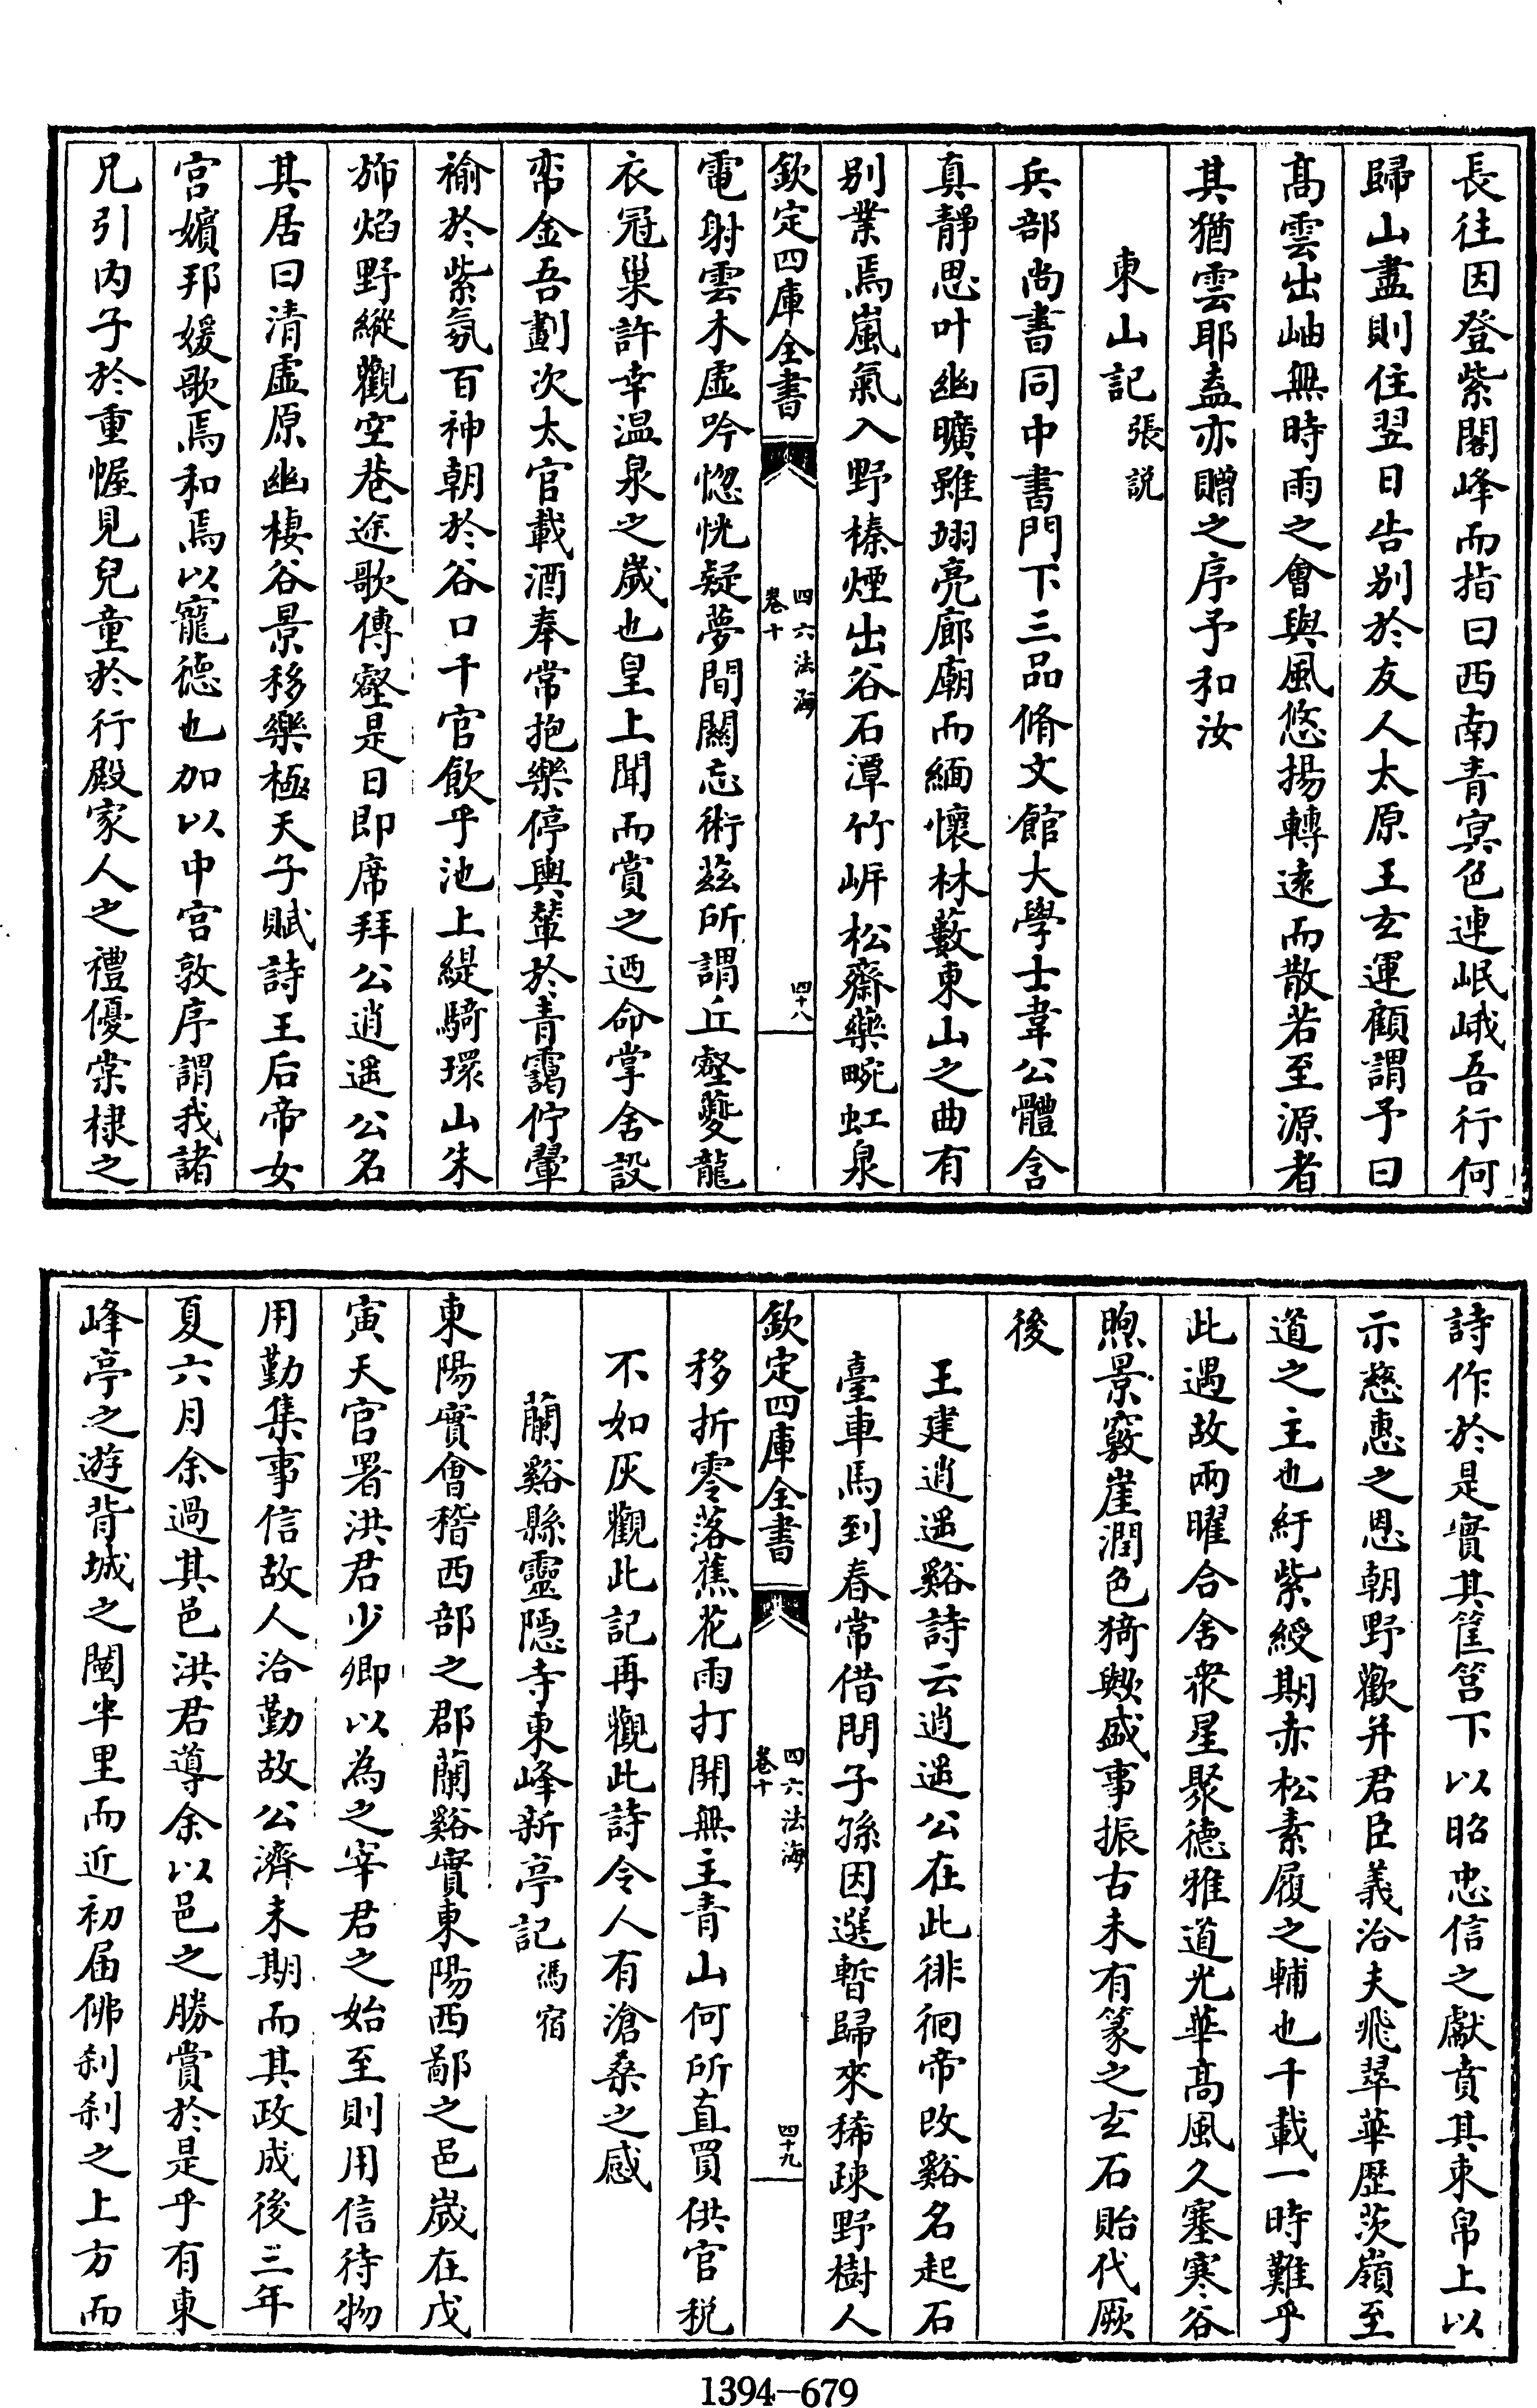 長往因登紫閣峰而指曰西南青冥色連岷峨吾行何
歸山盡則住翌日告别於友人太原王玄運顧謂予曰
髙雲出岫無時雨之會與風悠揚轉遠而散若至源者
其猶雲耶盍亦贈之序予和汝
東山記張說
兵部尚書同中書門下三品脩文館大學士韋公體含
真靜思叶幽曠雖翊亮廊廟而緬懷林藪東山之曲有
别業焉嵐氣入野榛煙出谷石潭竹岍松齋藥畹虹泉
欽定四庫全書
四六法海
卷十
四十八
電射雲木虛吟惚恍疑夢間關忘術茲所謂丘壑夔龍
衣冠巢許幸温泉之歲也皇上聞而賞之迺命掌舍設
帟金吾劃次太官載酒奉常抱樂停輿輦於青靄佇翬
褕於紫氛百神朝於谷口千官飲乎池上緹騎環山朱
斾焰野縱觀空巷途歌傳壑是日即席拜公逍遥公名
其居曰清虛原幽棲谷景移樂極天子賦詩王后帝女
宮嬪邦媛歌焉和焉以寵德也加以中宮敦序謂我諸
兄引内子於重幄見兒童於行殿家人之禮優棠棣之
詩作於是實其筐筥下以昭忠信之獻賁其束帛上以
示慈惠之恩朝野歡并君臣義洽夫飛翠華歷茨嶺至
道之主也紆紫綬期赤松素履之輔也千載一時難乎
此遇故兩曜合舍衆星聚德雅道光華髙風久塞寒谷
煦景窮崖潤色猗歟盛事振古未有篆之玄石貽代厥
後
王建逍遥谿詩云逍遥公在此徘徊帝改谿名起石
臺車馬到春常借問子孫因選暫歸來稀疎野樹人
欽定四庫全書
四六法海
卷十
四十九
移折零落蕉花雨打開無主青山何所直買供官税
不如灰觀此記再觀此詩令人有滄桑之感
蘭谿縣靈隠寺東峰新亭記馮宿
東陽實會稽西部之郡蘭谿實東陽西鄙之邑歲在戊
寅天官署洪君少卿以為之宰君之始至則用信待物
用勤集事信故人洽勤故公濟未期而其政成後三年
夏六月余過其邑洪君導余以邑之勝賞於是乎有東
峰亭之遊背城之闉半里而近初届佛刹刹之上方而
1394—679